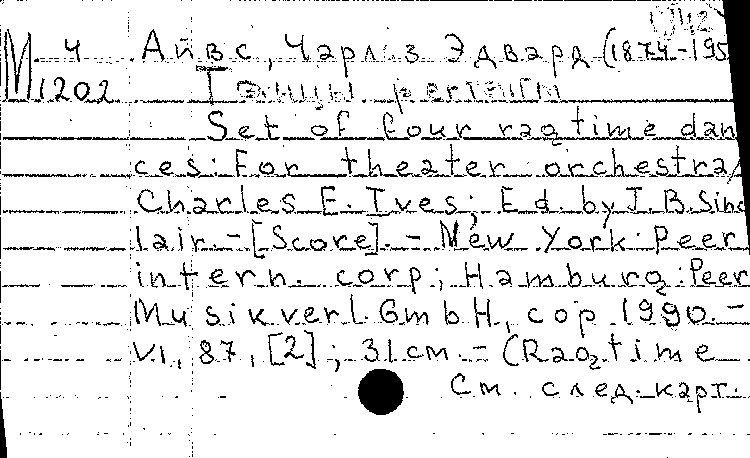 М 4 Айвс, Чарльз Эдвард (1874-195
1202 Танцы регтайм
Set of four ragtime dan
ces: For theater orchestra/
Charles E. Ives; Ed. by J.B. Sinc
lair. - [Score]. - New York: Peer
intern. corp; Hamburg: Peer
Musikverl. GmbH, cop 1990. -
VI, 87, [2]; 31 cm. - (Ragtime
См. след. карт.